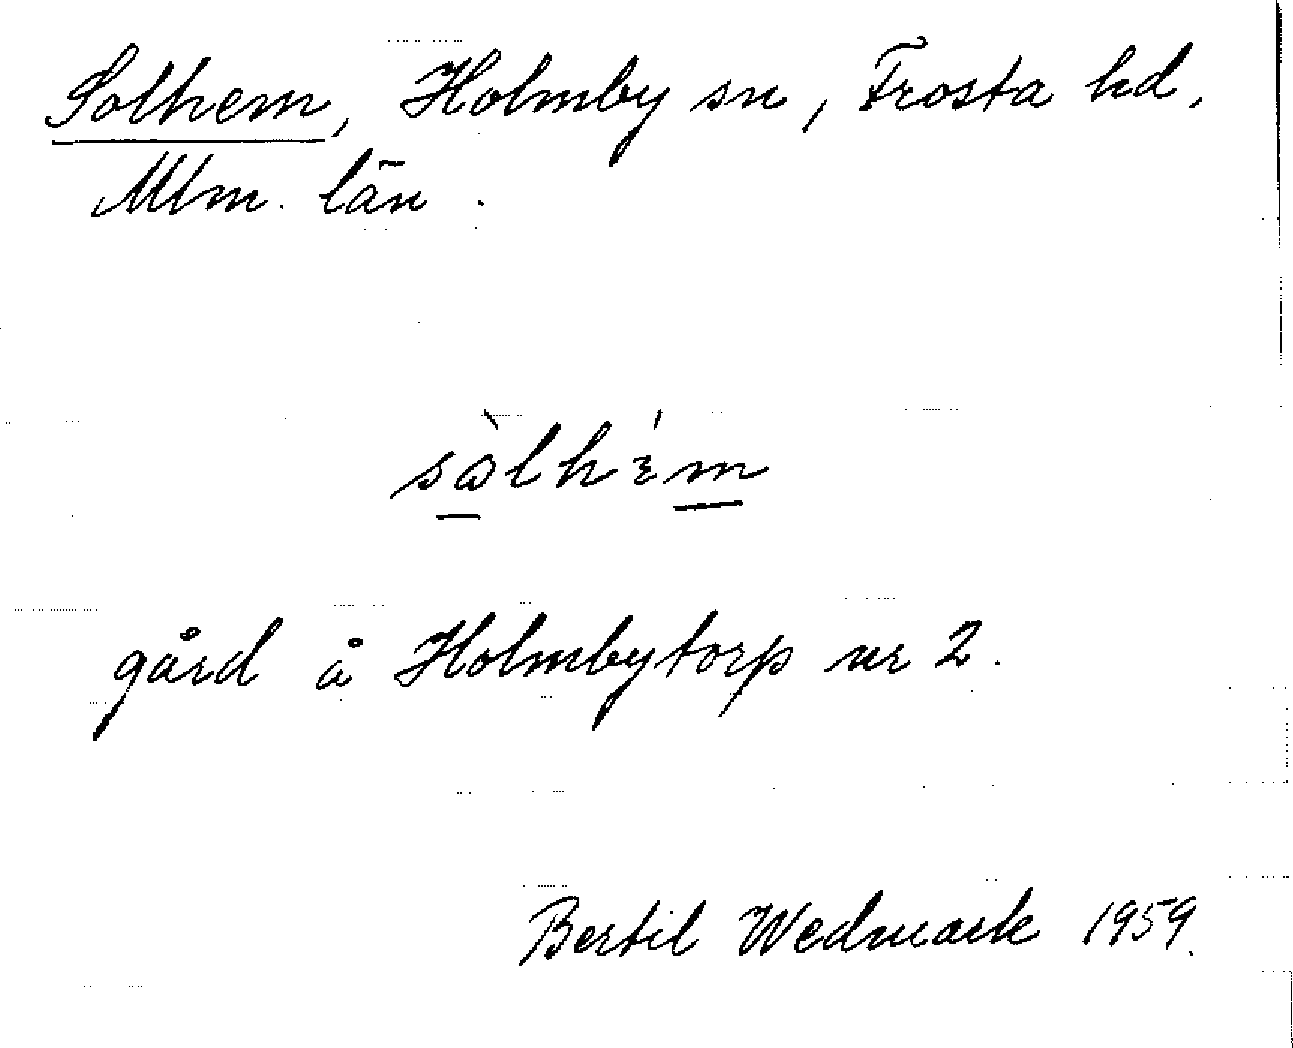 Solhem, Holmby sn, Frosta hd,
Mlm. län.
gård å Holmbytorp nr 2.
Bertil Wedmark 1959.